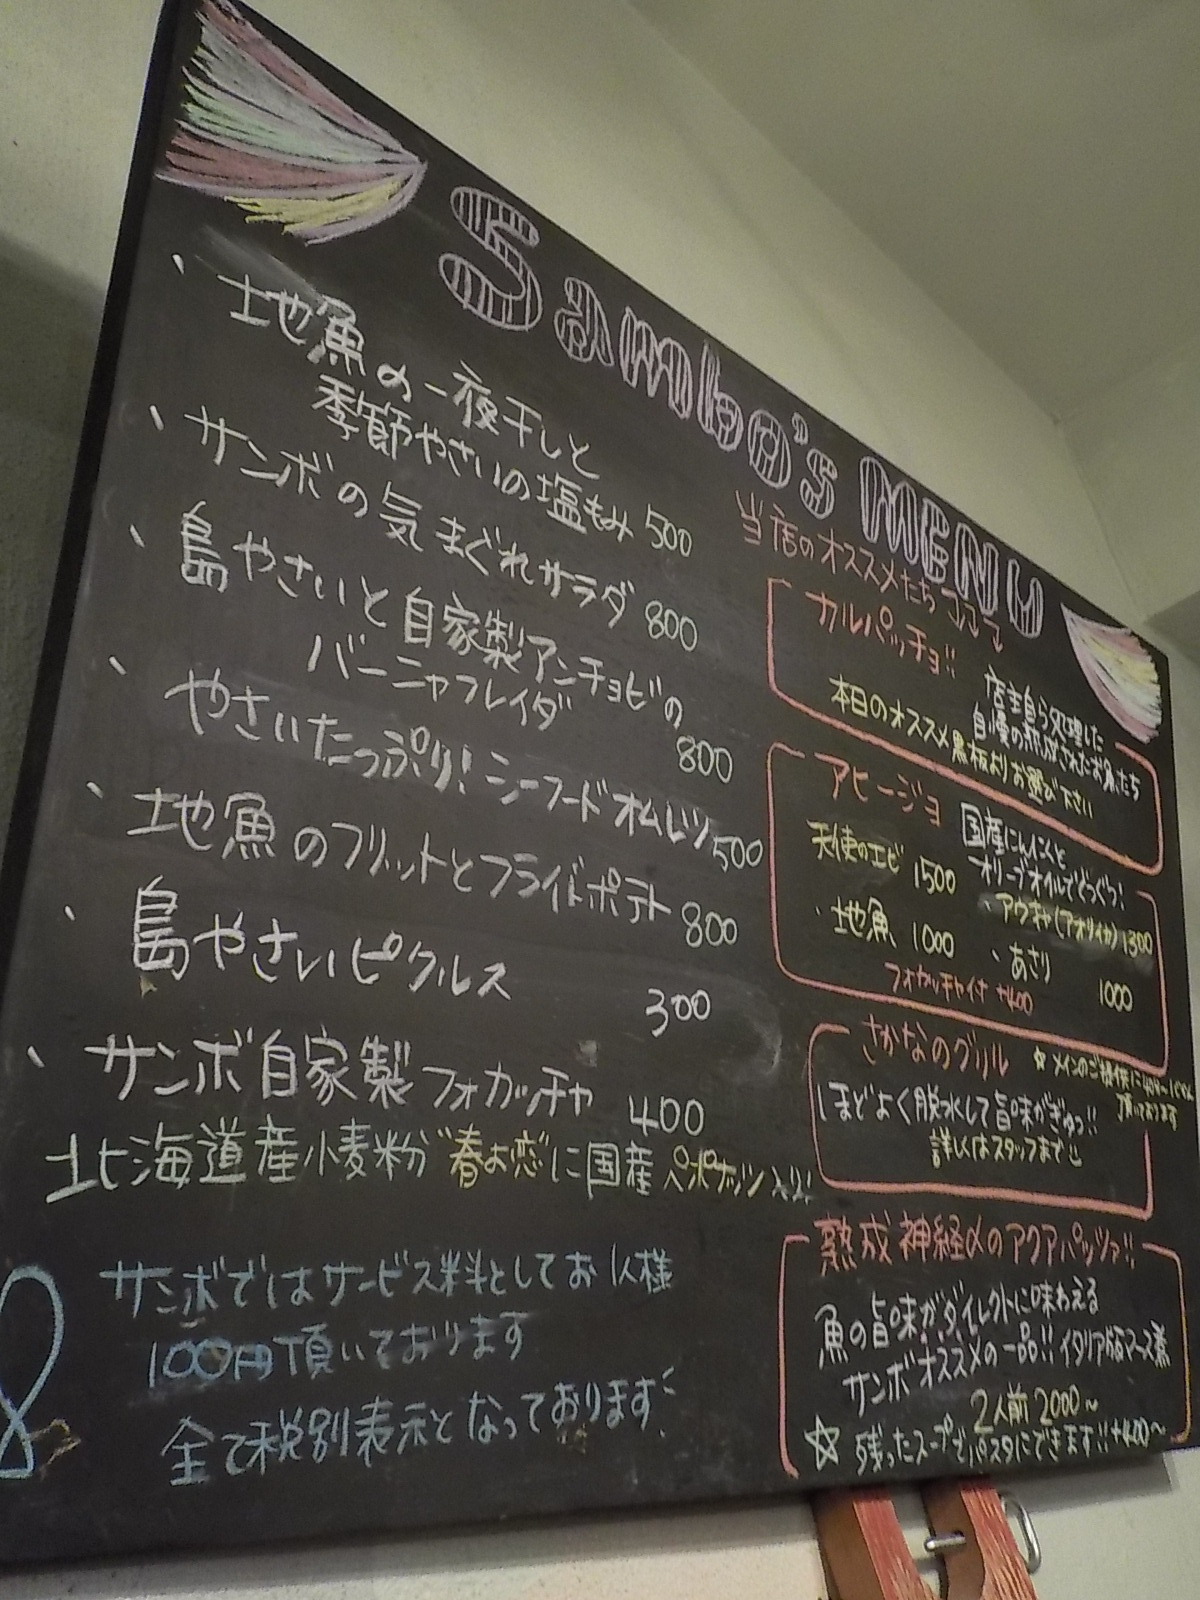 Sambo's MENU
、地魚の一夜干しと
季節やさいの塩もみ 500
、サンボの気まぐれサラダ 800
、島やさいと自家製アンチョビの
バーニャフレイダ 800
、やさいたっぷり!シーフードオムレツ 500
、地魚のフリットとフライドポテト 800
、島やさいピクルス 300
、サンボ自家製フォカッチャ 400
北海道産小麦粉"春よ恋"に国産
サンボではサービス料としてお1人様
100円頂いております
全て税別表示となっております!
当店のオススメたちココマ
カルパッチョ!!
店主自ら処理した
自慢の熟成されたお魚たち
本日のオススメ黒板よりお選び下さい
アヒージョ
国産にんにくと
オリーブオイルでぐつぐつ!
天使のエビ 1500
・アウキャ(アオリイカ) 1300
・地魚 1000
、あさり 1000
フォカッチャ付 +400
さかなのグリル
☆メインのご提供に40分〜
頂いております
ほどよく脱水して旨味がぎゅっ!!
詳しくはスタッフまで
熟成神経〆のアクアパッツァ!!
魚の旨味がダイレクトに味わえる
サンボオススメの一品!!イタリア版マース煮
2人前 2000〜
☆残ったスープでパスタにできます!!+400〜